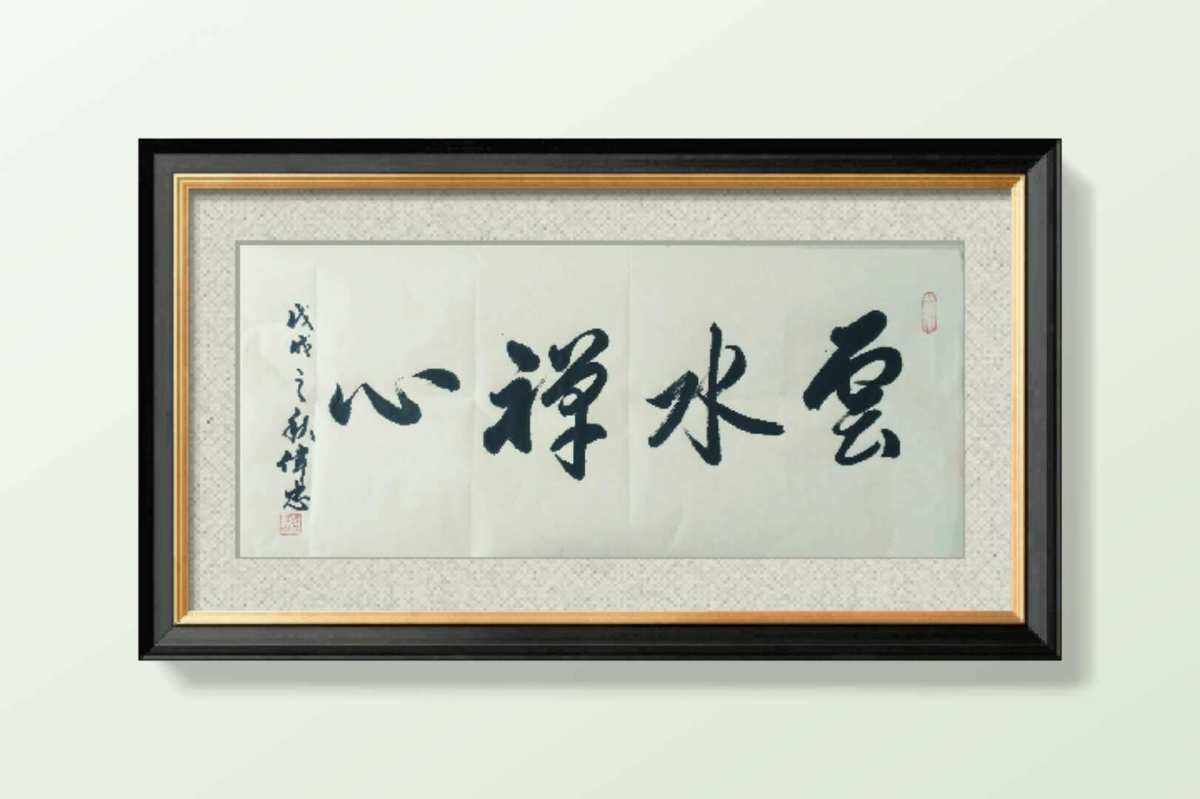 雲水禅心
戊戌之秋偉忠